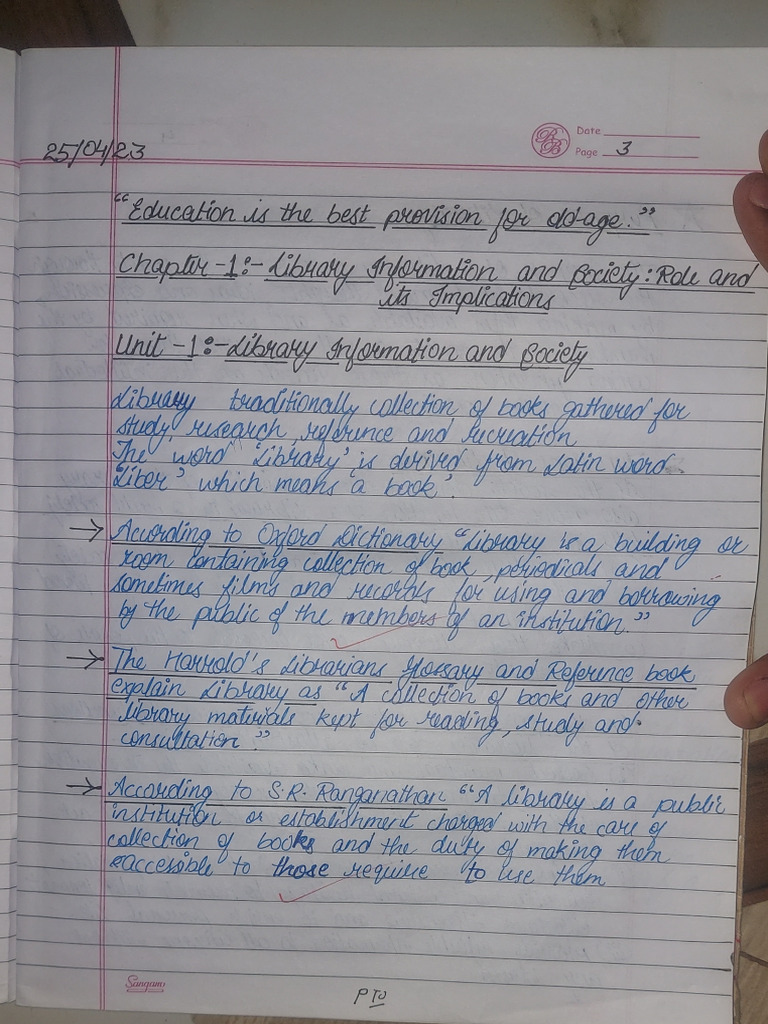 25/04/23
RB
Date
Page 3
"Education is the best provision for old-age."
Chapter-1:- Library Information and Society: Role and
its Implications
Unit-1:- Library Information and Society
Library traditionally collection of books gathered for
study, research, reference and recreation
The word 'Library' is derived from Latin word
'Liber' which means a book'.
→ According to Oxford Dictionary "Library is a building or
room containing collection of book, periodicals and
sometimes films and records for using and borrowing
by the public of the members of an institution."
→ The Harrold's Librarians Glossary and Reference book
explain Library as "A collection of books and other
library materials kept for reading, study and
consultation."
→ According to S.R. Ranganathan "A library is a public
institution or establishment charged with the care of
collection of books and the duty of making them
accesible to those require to use them
Sangam
PTO